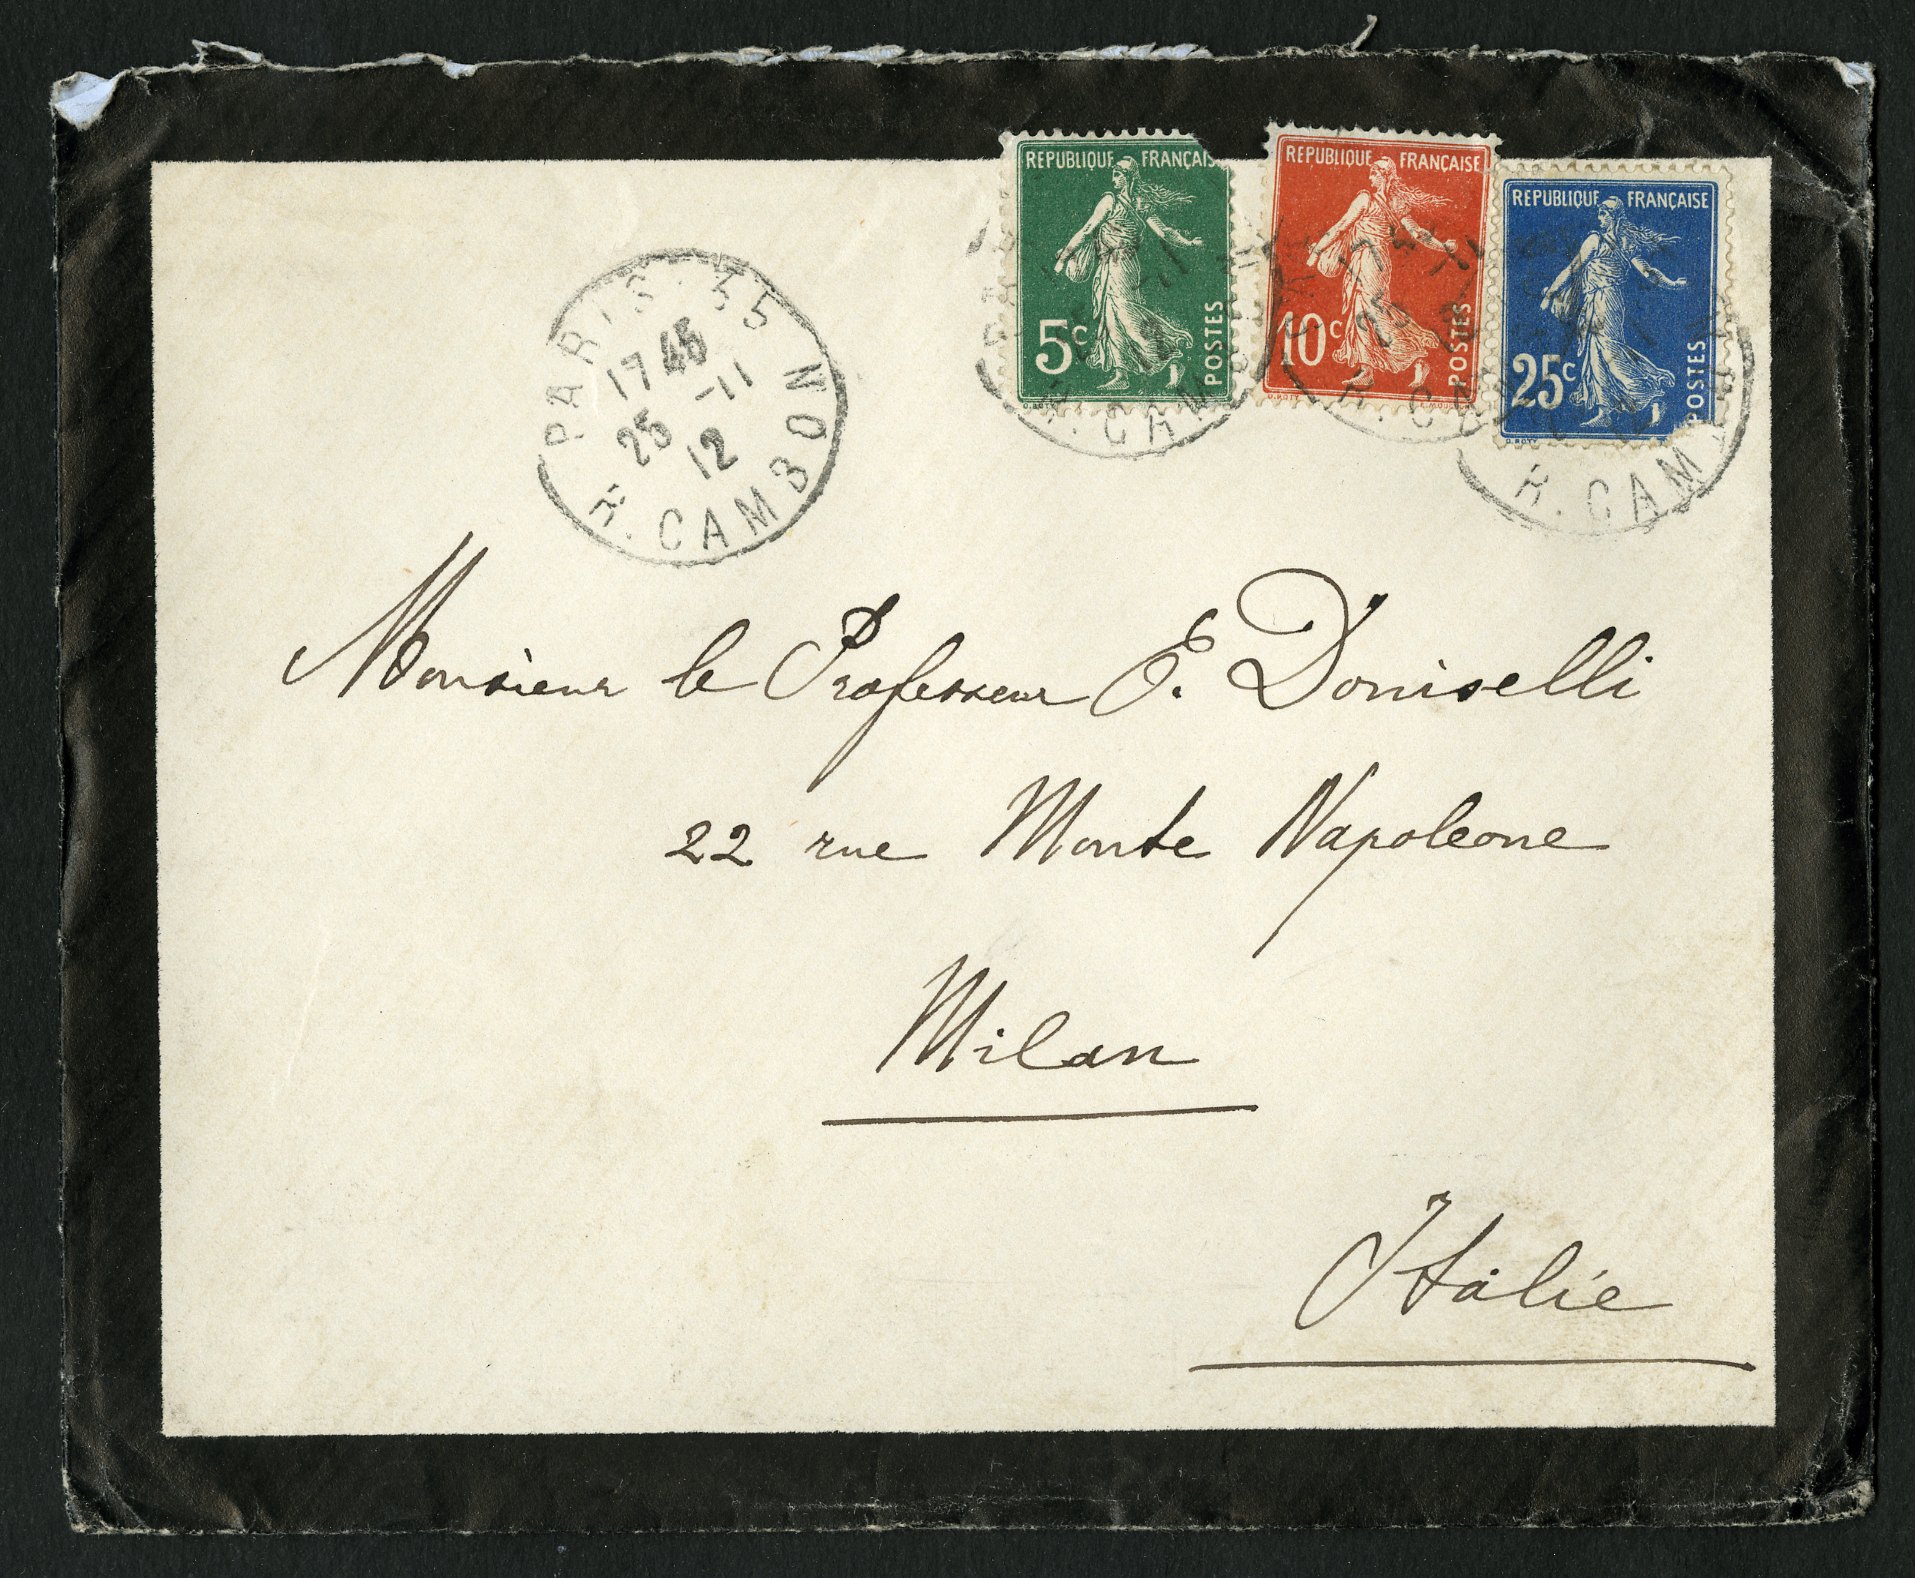 REPUBLIQUE FRANÇAIS
5c
POSTES
REPUBLIQUE FRANÇAISE
10c
POSTES
REPUBLIQUE FRANÇAISE
25c
POSTES
O. ROTY
PARIS·35
17 45
25 -11
12
R. CAMBON
R. CAM
R. CA
R. CAM
Monsieur le Professeur E. Doniselli
22 rue Monte Napoleone
Milan
Italie